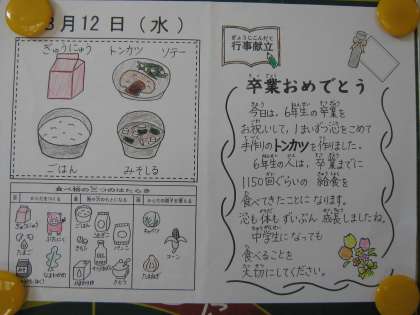 3月12日（水）
ぎゅうにゅう
トンカツ
ソテー
ごはん
みそしる
食べ物の三つのはたらき
ぶたにく
たまご
わかめ
ごはん
さとう
キャベツ
コーン
たまねぎ
ぎょうじこんだて
行事献立
卒業おめでとう
今日は、6年生の卒業を
お祝いして、1まいずつ心をこめて
手作りのトンカツを作りました。
6年生の人は、卒業までに
1150回ぐらいの給食を
食べてきたことになります。
心も体もずいぶん成長しましたね。
中学生になっても
食べることを
大切にしてください。